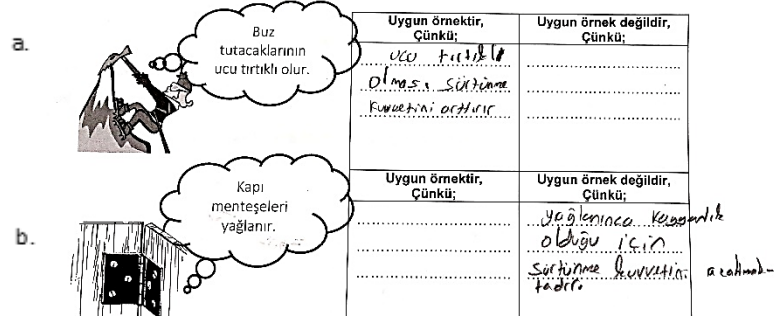 a.
Buz
tutacaklarının
ucu tırtıklı olur.
Uygun örnektir,
Çünkü;
Uygun örnek değildir,
Çünkü;
ucu tırtıklı
olması sürtünme
kuvvetini arttırır
b.
Kapı
menteşeleri
yağlanır.
Uygun örnektir,
Çünkü;
Uygun örnek değildir,
Çünkü;
yağlanınca kayganlık
olduğu için
sürtünme kuvvetini azaltmak-
tadır.